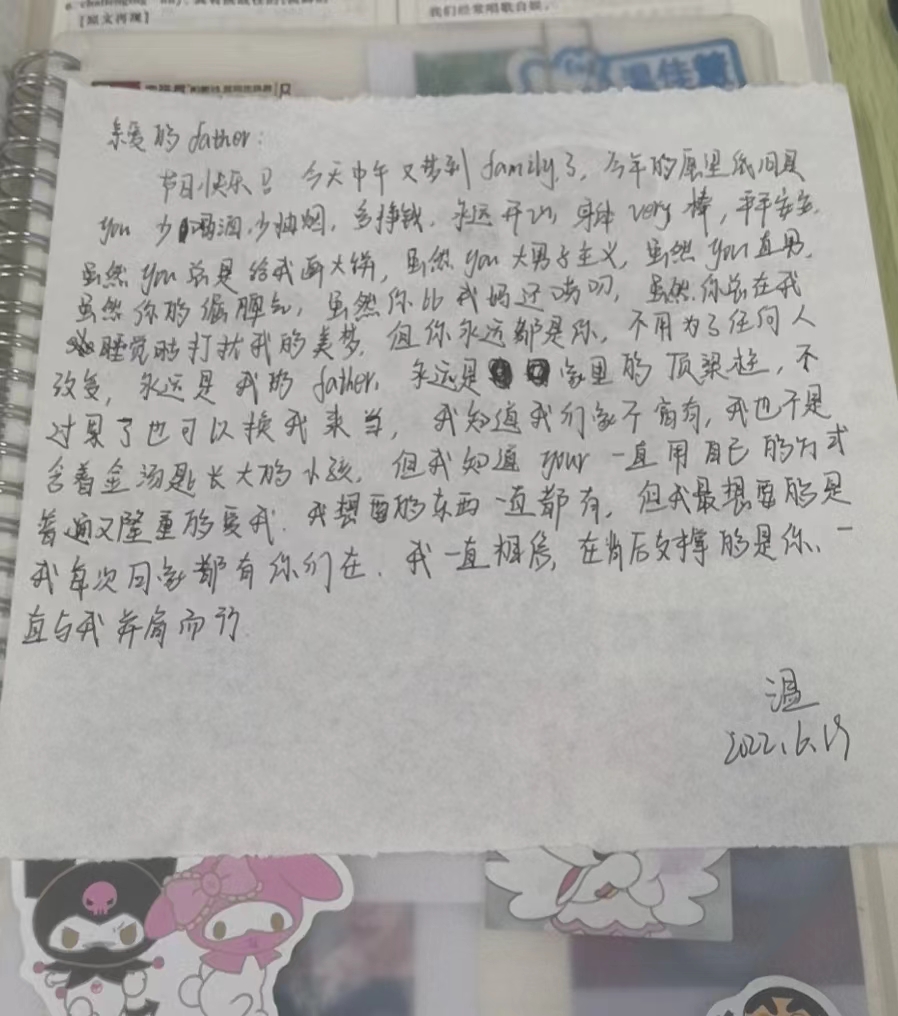 我们经常唱歌自娱。
[原文再现]
亲爱的father:
节日快乐!! 今天中午又梦到family了,今年的愿望纸间是
you 少喝酒,少抽烟,多挣钱.永远开心,身体very棒,平平安安.
虽然you总是给我画大饼,虽然you大男子主义,虽然you直男.
虽然你的倔脾气,虽然你比我妈还唠叨,虽然你总在我
睡觉时打扰我的美梦.但你永远都是你.不用为了任何人
改变,永远是我的father.永远是家里的顶梁柱,不
过累了也可以换我来当,我知道我们家不富有,我也不是
含着金汤匙长大的小孩.但我知道your一直用自己的方式
普通又隆重的爱我.我想要的东西一直都有,但我最想要的是
我每次回家都有你们在.我一直相信,在背后支撑的是你、一
直与我并肩而行.
温
2022.6.19